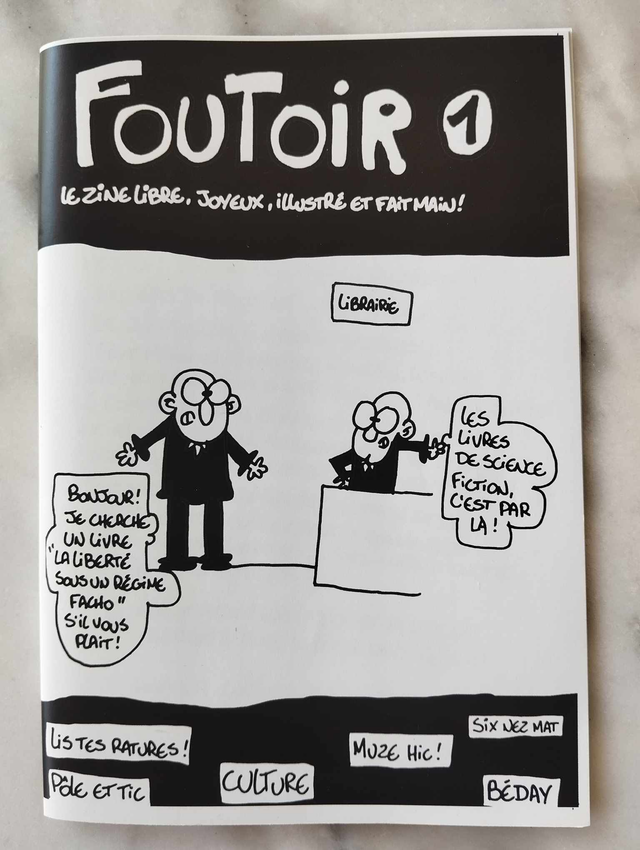 FOUTOIR 1
LE ZINE LIBRE, JOYEUX, ILLUSTRÉ ET FAIT MAIN!
LIBRAIRIE
BONJOUR!
JE CHERCHE
UN LIVRE
"LA LIBERTÉ
SOUS UN RÉGIME
FACHO"
S'IL VOUS
PLAIT!
LES
LIVRES
DE SCIENCE
FICTION,
C'EST PAR
LÀ!
LIS TES RATURES!
PÔLE ET TIC
CULTURE
MUZE HIC!
SIX NEZ MAT
BÉDAY